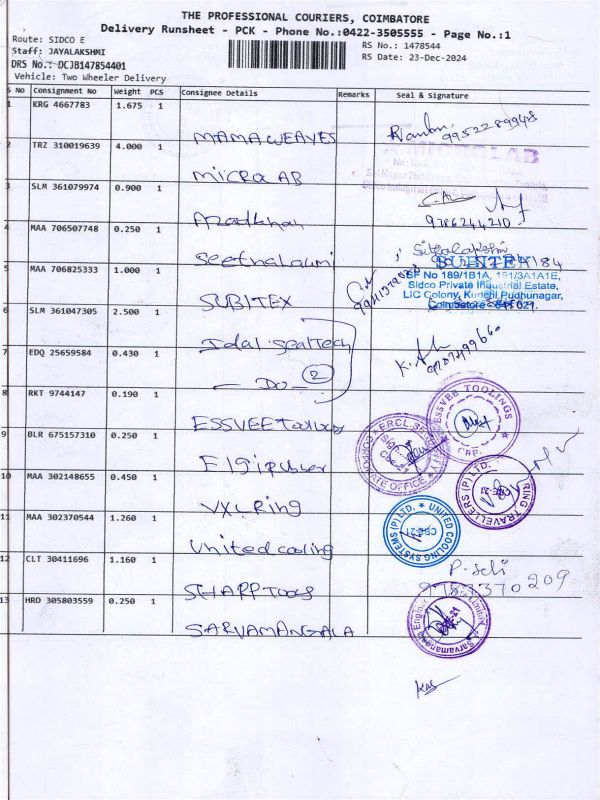 THE PROFESSIONAL COURIERS, COIMBATORE
Delivery Runsheet - PCK - Phone No.:0422-3505555 - Page No.:1
Route: SIDCO E
RS No.: 1478544
Staff: JAYALAKSHMI
RS Date: 23-Dec-2024
DRS No.: DCJB147854401
Vehicle: Two Wheeler Delivery
S No Consignment No Weight PCS Consignee Details Remarks Seal & Signature
1 KRG 4667783 1.675 1 MAMA WEAVES
2 TRZ 310019639 4.000 1 MICRO AB
3 SLM 361079974 0.900 1 9786244210
4 MAA 706507748 0.250 1
5 MAA 706825333 1.000 1 SUBITEX
SUBITEX
SF No 189/1B1A, 191/3A1A1E,
Sidco Private Industrial Estate,
LIC Colony, Kurichi Pudhunagar,
Coimbatore - 641 021.
6 SLM 361047305 2.500 1 Ideal SealTech
7 EDQ 25659584 0.430 1 - DO - 2
8 RKT 9744147 0.190 1 ESSVEE Toolings
ESSVEE TOOLINGS
CBE
9 BLR 675157310 0.250 1 Elgi rubber
CORPORATE OFFICE
10 MAA 302148655 0.450 1 VXL Ring
RING TRAVELLERS (P) LTD.
11 MAA 302370544 1.260 1 United cooling
UNITED COOLING SYSTEMS (P) LTD.
CBE-21
12 CLT 30411696 1.160 1 SHARP Tools
13 HRD 305803559 0.250 1 SARVAMANGALA